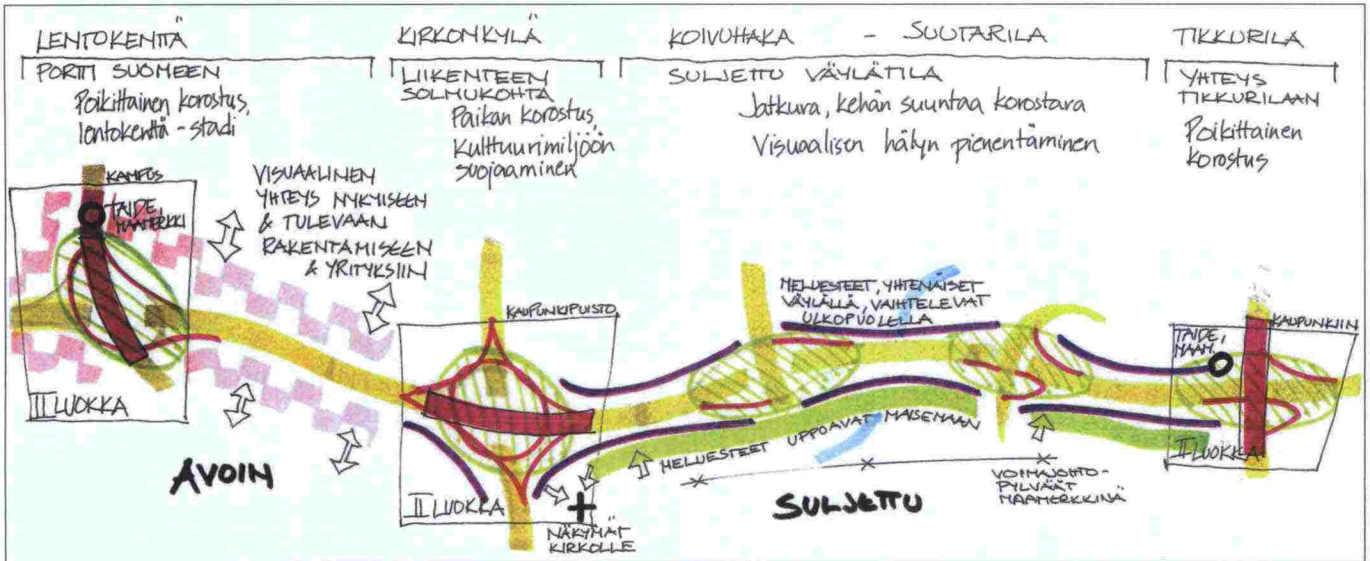 LENTOKENTTÄ
PORTTI SUOMEEN
Poikittainen korostus,
lentokenttä - stadi
KIRKONKYLÄ
LIIKENTEEN
SOLMUKOHTA
Paikan korostus,
Kulttuurimiljöön
suojaaminen
KOIVUHAKA - SUUTARILA
SULJETTU VÄYLÄTILA
Jatkuva, kehän suuntaa korostava
Visuaalisen hälyn pienentäminen
TIKKURILA
YHTEYS
TIKKURILAAN
Poikittainen
korostus
KAMPUS
TAIDE,
MAAMERKKI
VISUAALINEN
YHTEYS NYKYISEEN
& TULEVAAN
RAKENTAMISEEN
& YRITYKSIIN
II LUOKKA
AVOIN
KAUPUNKIPUISTO
II LUOKKA
NÄKYMÄT
KIRKOLLE
MELUESTEET, YHTENÄISET
VÄYLÄLLÄ, VAIHTELEVAT
ULKOPUOLELLA
MELUESTEET UPPOAVAT MAISEMAAN
SULJETTU
VOIMAJOHTO-
PYLVÄÄT
MAAMERKKINÄ
TAIDE,
MAAM.
KAUPUNKIIN
II LUOKKA